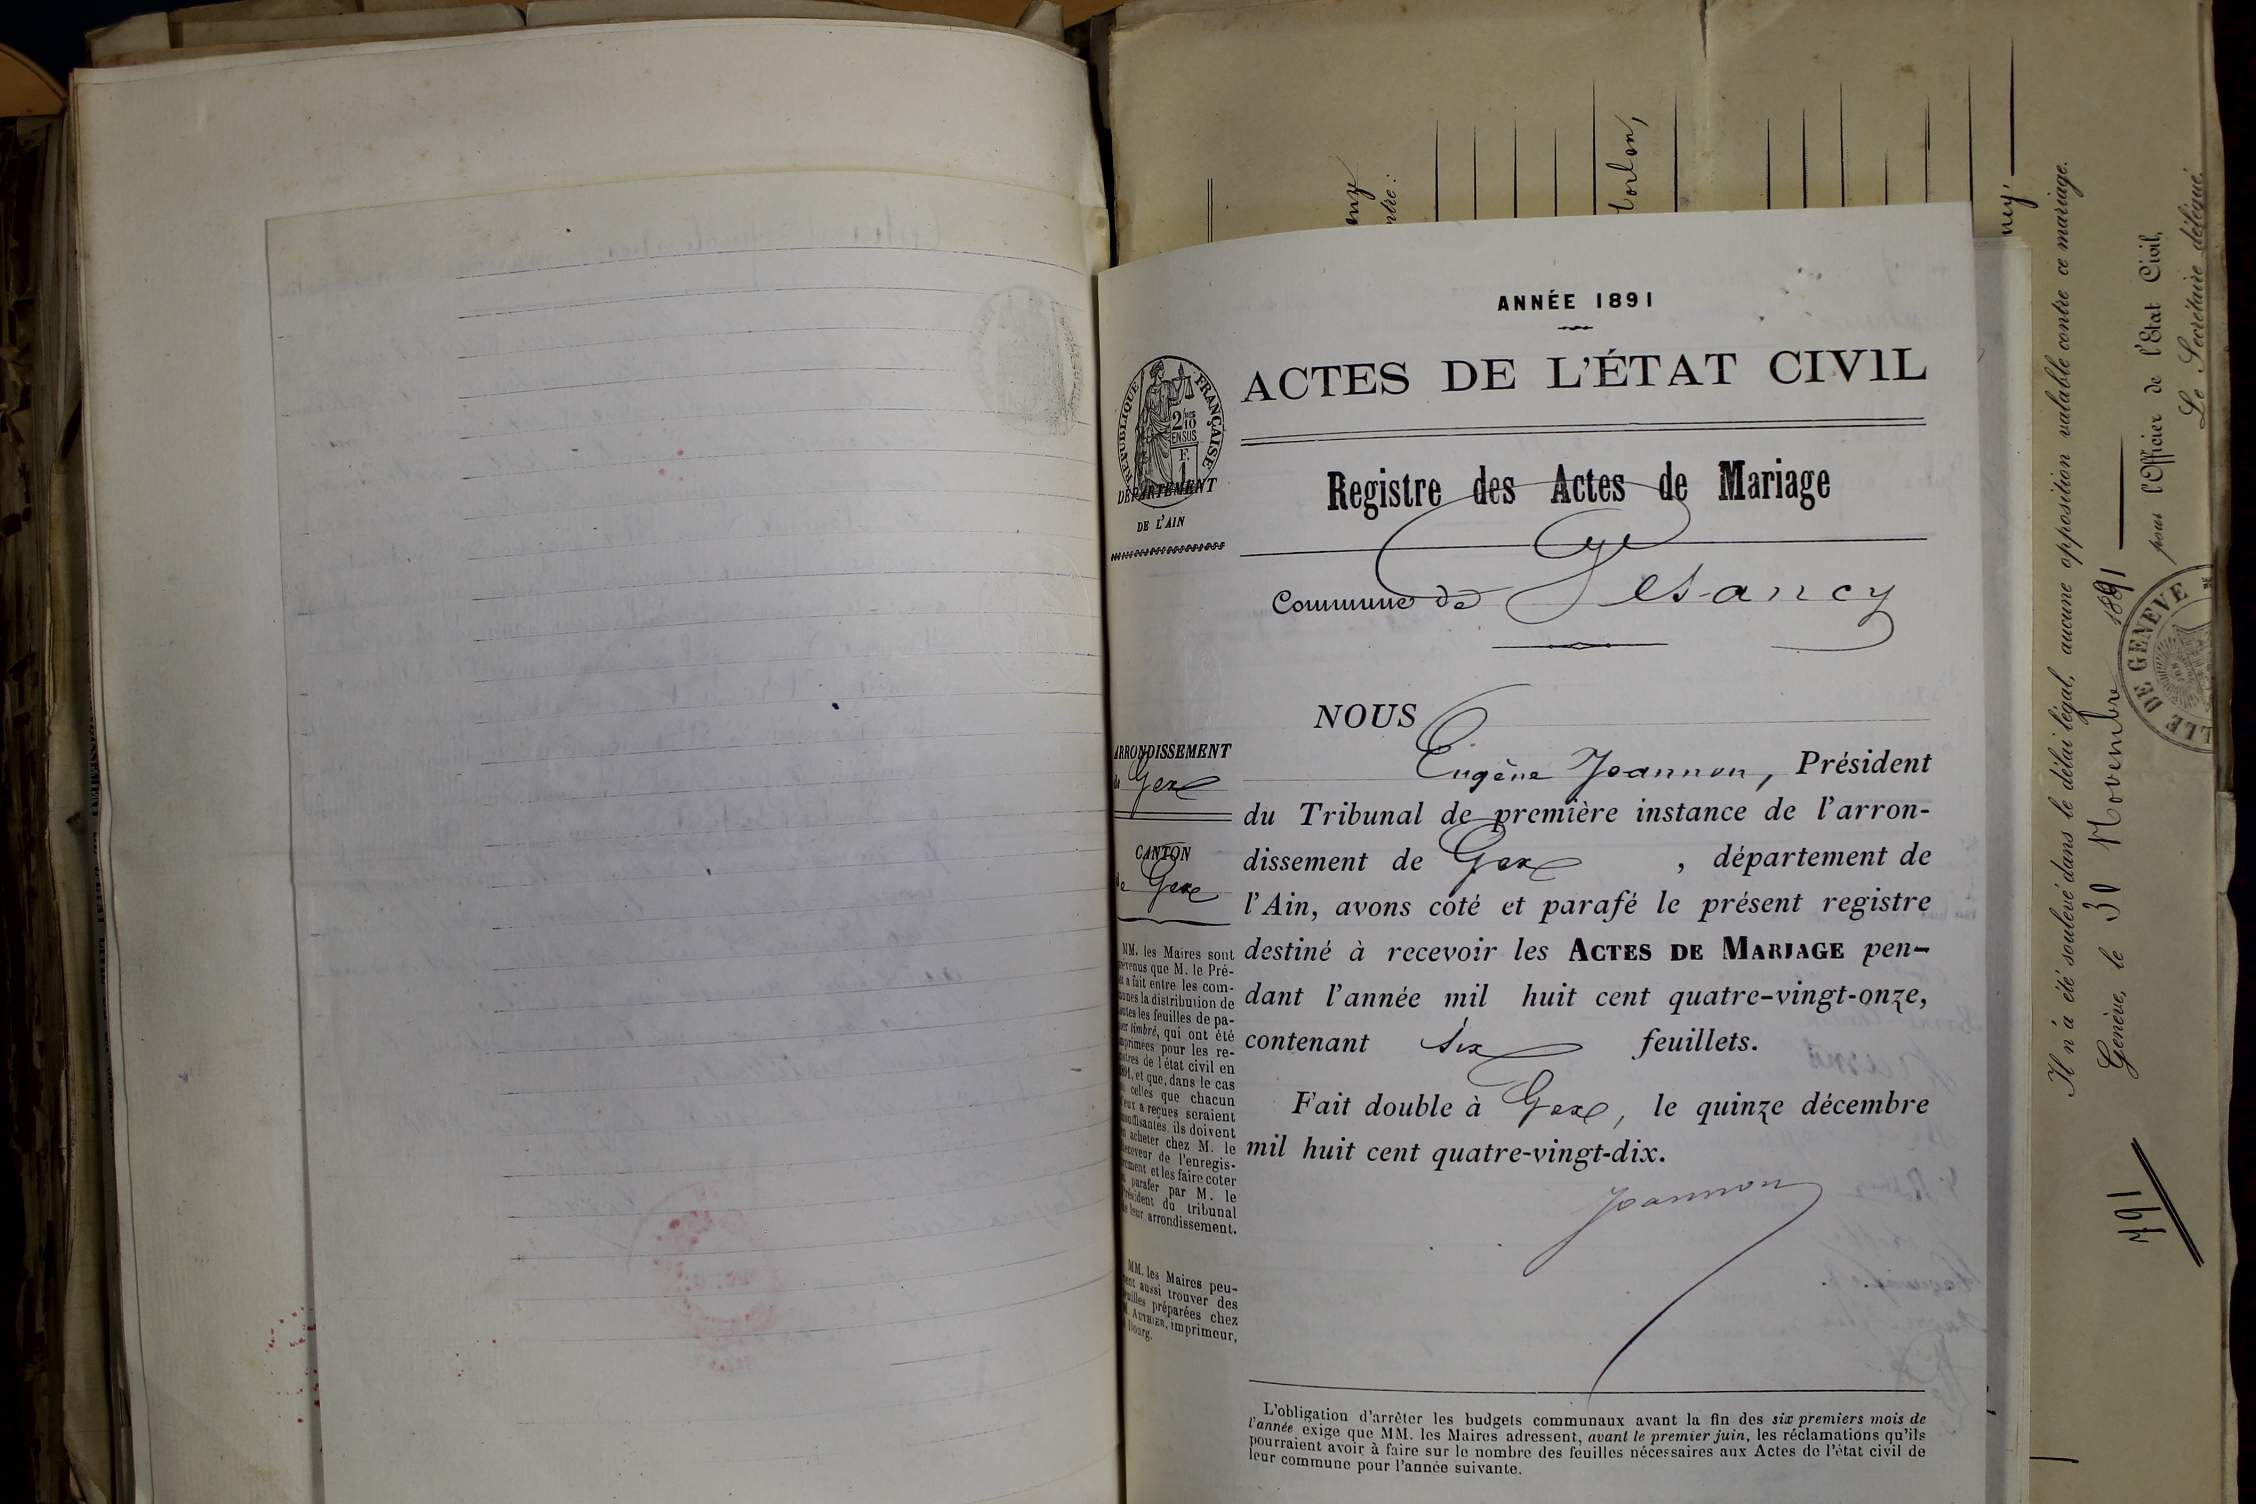 ANNÉE 1891
ACTES DE L'ÉTAT CIVIL
RÉPUBLIQUE FRANÇAISE
2/10
EN SUS
F.
1
DÉPARTEMENT
DE L'AIN
Registre des Actes de Mariage
Commune de Vesancy
NOUS
Eugène Joannon, Président
du Tribunal de première instance de l'arron-
dissement de Gex , département de
l'Ain, avons coté et parafé le présent registre
destiné à recevoir les ACTES DE MARIAGE pen-
dant l'année mil huit cent quatre-vingt-onze,
contenant six feuillets.
Fait double à Gex, le quinze décembre
mil huit cent quatre-vingt-dix.
Joannon
ARRONDISSEMENT
de Gex
CANTON
de Gex
MM. les Maires sont
prévenus que M. le Pré-
fet a fait entre les com-
munes la distribution de
toutes les feuilles de pa-
pier timbré, qui ont été
imprimées pour les re-
gistres de l'état civil en
1891, et que, dans le cas
où celles que chacun
d'eux a reçues seraient
insuffisantes, ils doivent
en acheter chez M. le
Receveur de l'enregis-
trement et les faire coter
et parafer par M. le
Président du tribunal
de leur arrondissement.
MM. les Maires peu-
vent aussi trouver des
feuilles préparées chez
M. AUTHIER, imprimeur,
à Bourg.
L'obligation d'arrêter les budgets communaux avant la fin des six premiers mois de
l'année exige que MM. les Maires adressent, avant le premier juin, les réclamations qu'ils
pourraient avoir à faire sur le nombre des feuilles nécessaires aux Actes de l'état civil de
leur commune pour l'année suivante.
Il n'a été soulevé dans le délai légal, aucune opposition valable contre ce mariage.
Genève, le 30 Novembre 1891
pour l'Officier de l'Etat Civil,
Le Secrétaire délégué.
VILLE DE GENÈVE
791